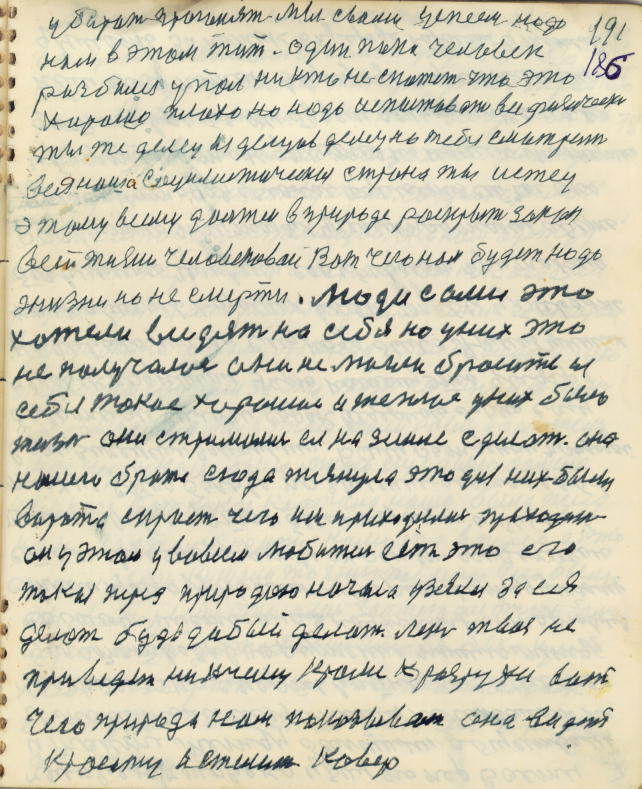 убирать прогонят. Мы своим успеем надо 191
нам в этом жить. один пока человек 186
разбил упал никто не скажет что это
хорошо плохо но надо испытовать все физически
ты же делец из дельцов делец на тебя смотрит
вся наша социалистическая страна ты истец
этому всему должен в природе раскрыть закон
всей жизни человековой Вот чего нам будет надо
жизни но не смерти. Люди сами это
хотели видят на себя но у них это
не получалось они не могли бросить из
себя такое хорошее и теплое у них было
они стремились на земле сделать. она
нашего брата сюда тянула это для них были
ворота спрост чего им приходилось проходить
он у этом у во всем любитель есть это его
такая перед природою начала взялся за ся
делать будь добый делать. лень твоя не
приведет ни к чему кроме к разрухи вот
чего природа нам показывает она видит